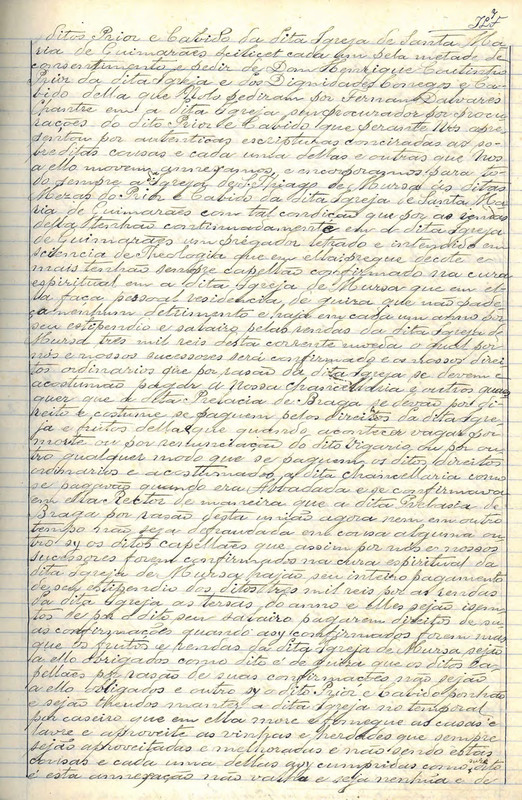 ditos Prior e Cabido da dita Igreja de Santa Ma-
ria de Guimarães scilicet cada um pela metade de
consentimento e pedir de Dom Henrique Coutinho
Prior da dita Igreja e dos Dignidades Conegos e Ca-
bido della que pediram por Fernam Dalvares
Chantre em a dita Igreja seu procurador por procu-
rações do dito Prior e Cabido que perante Nós apre-
sentou por autenticas escripturas conciradas as so-
breditas cousas e cada uma dellas e outras que Nos
a ello movem annexamos e encorporamos para to-
do sempre a Igreja de S. Thiago de Mursa ás ditas
Mezas do Prior e Cabido da dita Igreja de Santa Ma-
ria de Guimarães com tal condição que por as rendas
della tenhão continuadamente em a dita Igreja
de Guimarães um prégador letrado e intendido em
sciencia de Theologia que em ella pregue decote e
mais tenhão sempre capellão confirmado na cura
espiritual em a dita Igreja de Mursa que em el-
la faça pessoal residencia, de guira que não pade-
ça nenhum detrimento e haja em cada um anno por
seu estipendio e salairo pelas rendas da dita Igreja de
Mursa tres mil reis desta corrente moeda o qual por
nós e nossos successores será confirmado e os nossos direi-
tos ordinarios que por rasão da dita Igreja se devem e
acostumão pagar a nossa chancellaria e outros quaes
quer que a dita Prelacia de Braga se devão por di-
reito e costume se paguem pelos direitos da dita Igre-
ja e fruitos della e que quando acontecer vagar por
morte ou por renunciação do dito Vigario ou por ou-
tro qualquer modo que se paguem os ditos direitos
ordinarios e acostumados a dita chancellaria como
se pagavão quando era Abbadada e se confirmava
em ella Rector de maneira que a dita Prelacia de
Braga por rasão desta união agora nem em outro
tempo não seja defraudada em cousa alguma ou-
tro sy os ditos capellães que assim por nós e nossos
successores forem confirmados na cura espiritual da
dita Igreja de Mursa hajão seu inteiro pagamento
de seu estipendio dos ditos tres mil reis por as rendas
da dita Igreja as tersas do anno e elles sejão isen-
tos de por o dito seu salairo pagarem direitos de su-
as confirmações quando asy confirmados forem mas
que os fruitos e rendas da dita Igreja de Mursa sejão
a ello obrigados como dito é de guira que os ditos ca-
pellães por rasão de suas confirmações não sejão
a ello obligados e outro sy o dito Prior e Cabido ponhão
e sejão theudos manter a dita Igreja no temporal
por caseiro que em ella more e as casas e
lavre e aproveite as vinhas e herdades que sempre
sejão aproveitadas e melhoradas e não sendo estas
cousas e cada uma dellas asy cumpridas como dito
é esta annexação não valha e seja nenhũa e de